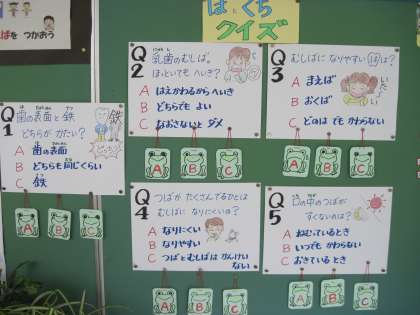 はとくち
クイズ
ばを つかおう
Q1
歯の表面と鉄
どちらが かたい?
A 歯の表面
B どちらも同じくらい
C 鉄
鉄
A
B
C
Q2
乳歯のむしば。
ほっといても へいき?
A はえかわるから へいき
B どちらでも よい
C なおさないと ダメ
A
B
C
Q3
むしばに なりやすい は は?
A まえば
B おくば
C どのは でも かわらない
A
B
C
Q4
つばが たくさんでるひとは
むしばに なりにくいは?
A なりにくい
B なりやすい
C つばと むしばは かんけい
ない
A
B
C
Q5
口の中のつばが
すくないのは?
A ねむているとき
B いつでも かわらない
C おきている とき
A
B
C